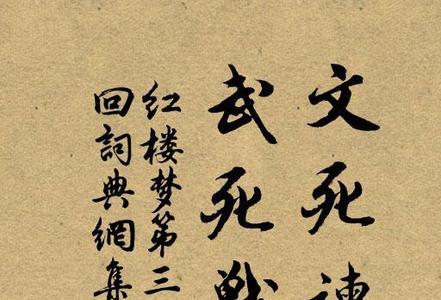 文死谏
武死战
红楼梦第三
回词典網集